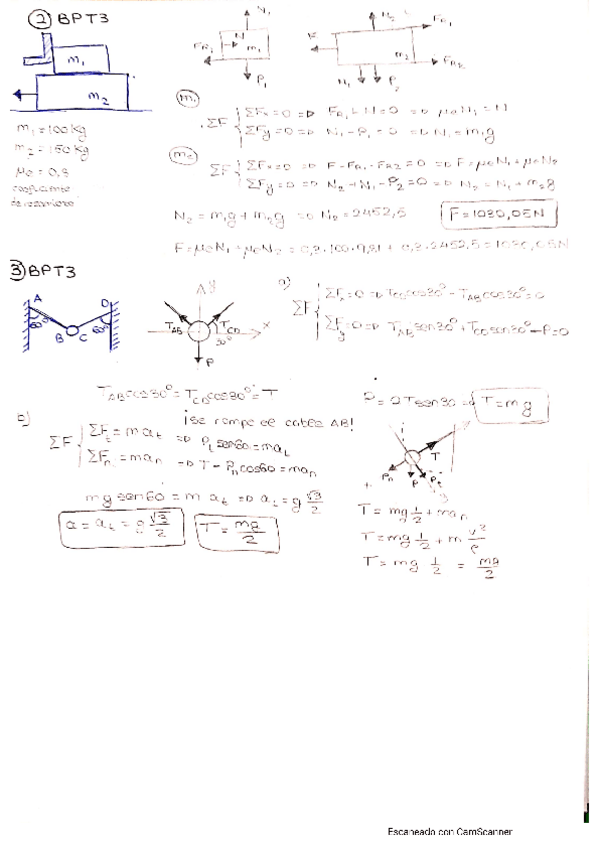 ② BPT3
m₁
m₂
m₁ = 100 kg
m₂ = 150 kg
μe = 0,3
coeficiente
de rozamiento
N m₁
P₁
m₂
N₁ P₂
m₁
ΣF { ΣFx=0 ⇒
ΣFy=0 ⇒ N₁-P₁=0 ⇒ N₁=m₁g
m₂
ΣF { ΣFx=0 ⇒ F-FR1-FR2=0 ⇒ F=μeN₁+μeN₂
ΣFy=0 ⇒
N₂ = m₁g + m₂g ⇒ N₂ = 2452,5
F = 1030,05 N
F = μeN₁ + μeN₂ = 0,3·100·9,81 + 0,3·2452,5 = 1030,05 N
③ BPT3
A D
60° B C 60°
TAB TCD
30° x
P
a)
ΣF { ΣFx=0 ⇒ TCD cos30° - TAB cos30° = 0
ΣFy=0 ⇒ TAB sen30° + TCD sen30° - P = 0
TAB cos30° = TCD cos30° = T
P = 2T sen30 ⇒ T = mg
b)
¡se rompe el cable AB!
ΣF { ΣFt = m at ⇒ Pt sen60 = mat
ΣFn = man ⇒ T - Pn cos60 = man
T
Pn P Pt
mg sen60 = m at ⇒ at = g √3/2
a = at = g √3/2
T = mg/2
T = mg 1/2 + man
T = mg 1/2 + m v²/ρ
T = mg 1/2 = mg/2
Escaneado con CamScanner